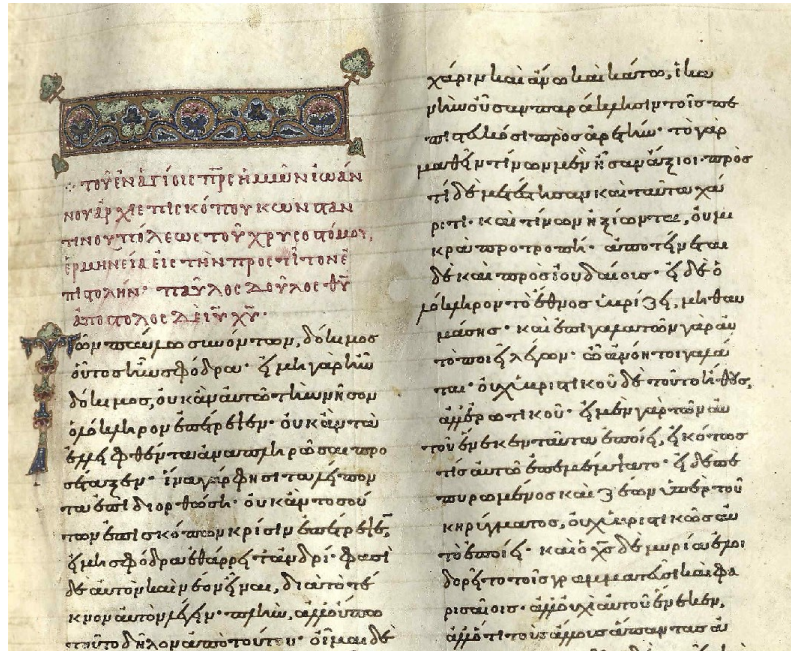 τοῦ ἐν ἁγίοις πρς ἡμῶν ἰωάν
νου ἀρχιεπισκόπου κωνσταν
τινουπόλεως τοῦ χρυσοστόμου,
ἑρμηνεία εἰς τὴν πρὸς τίτον ἐ
πιστολήν· παῦλος δοῦλος θυ
ἀπόστολος δὲ ιυ χυ·
Τῶν παύλω συνόντων, δόκιμος
οὗτος ἦν σφόδρα· εἰ μὴ γὰρ ἦν
δόκιμος, οὐκ ἂν αὐτῶ τὴν νῆσον
ὁλόκληρον ἐπέτρεψεν· οὐκ ἂν τὰ
ἐλλειφθέντα ἀναπληρῶσαι προ
σέταξεν· ἵνα γάρ φησι τὰ λείπον
τα ἐπιδιορθώση· οὐκ ἂν τοσού
των ἐπισκόπων κρίσιν ἐπέτρεψεν,
εἰ μὴ σφόδρα ἐθάρρει τῶ ἀνδρί· φασὶ
δὲ αὐτὸν καὶ νέον εἶναι, διὰ τὸ τέ
κνον αὐτὸν λέγειν· πλὴν, ἀλλ' οὔπω
τοῦτο δῆλον ἀπὸ τούτου· οἶμαι δὲ
χάριν καὶ ἄνω καὶ κάτω, ἱκα
νὴν οὖσαν παράκλησιν τοῖς πε
πιστευκόσι πρὸς ἀρετήν· τὸ γὰρ
μαθεῖν τίνων μὲν ἦσαν ἄξιοι· πρὸς
τί δὲ μετέστησαν καὶ ταῦτα χά
ριτι· καὶ τίνων ἠξίωνται, οὐ μι
κρὰ προτροπή· ἀποτείνεται
δὲ καὶ πρὸς ἰουδαίους· εἰ δὲ ὁ
λόκληρον τὸ ἔθνος ὑβρίζει, μὴ θαυ
μάσης· καὶ ἐπὶ γαλατῶν γὰρ αὐ
τὸ ποιεῖ λέγων· ὦ ἀνόητοι γαλά
ται· οὐχ ὑβριστικοῦ δὲ τοῦτο ἤθους,
ἀλλ' ἐρωτικοῦ· εἰ μὲν γὰρ τῶν αὐ
τοῦ ἕνεκεν ταῦτα ἐποίει, εἰκότως
τις αὐτῶ ἐπεμέμψατο· εἰ δὲ πε
πυρωμένος καὶ ζέων ὑπὲρ τοῦ
κηρύγματος, οὐχ ὑβριστικῶς αὐ
τὸ ἐποίει· καὶ ὁ χς δὲ μυρία ἐλοι
δορεῖτο τοῖς γραμματεῦσι καὶ φα
ρισαίοις· ἀλλ' οὐχ αὑτοῦ ἕνεκεν,
ἀλλ' ὅτι τοὺς ἄλλους ἅπαντας ἀπ